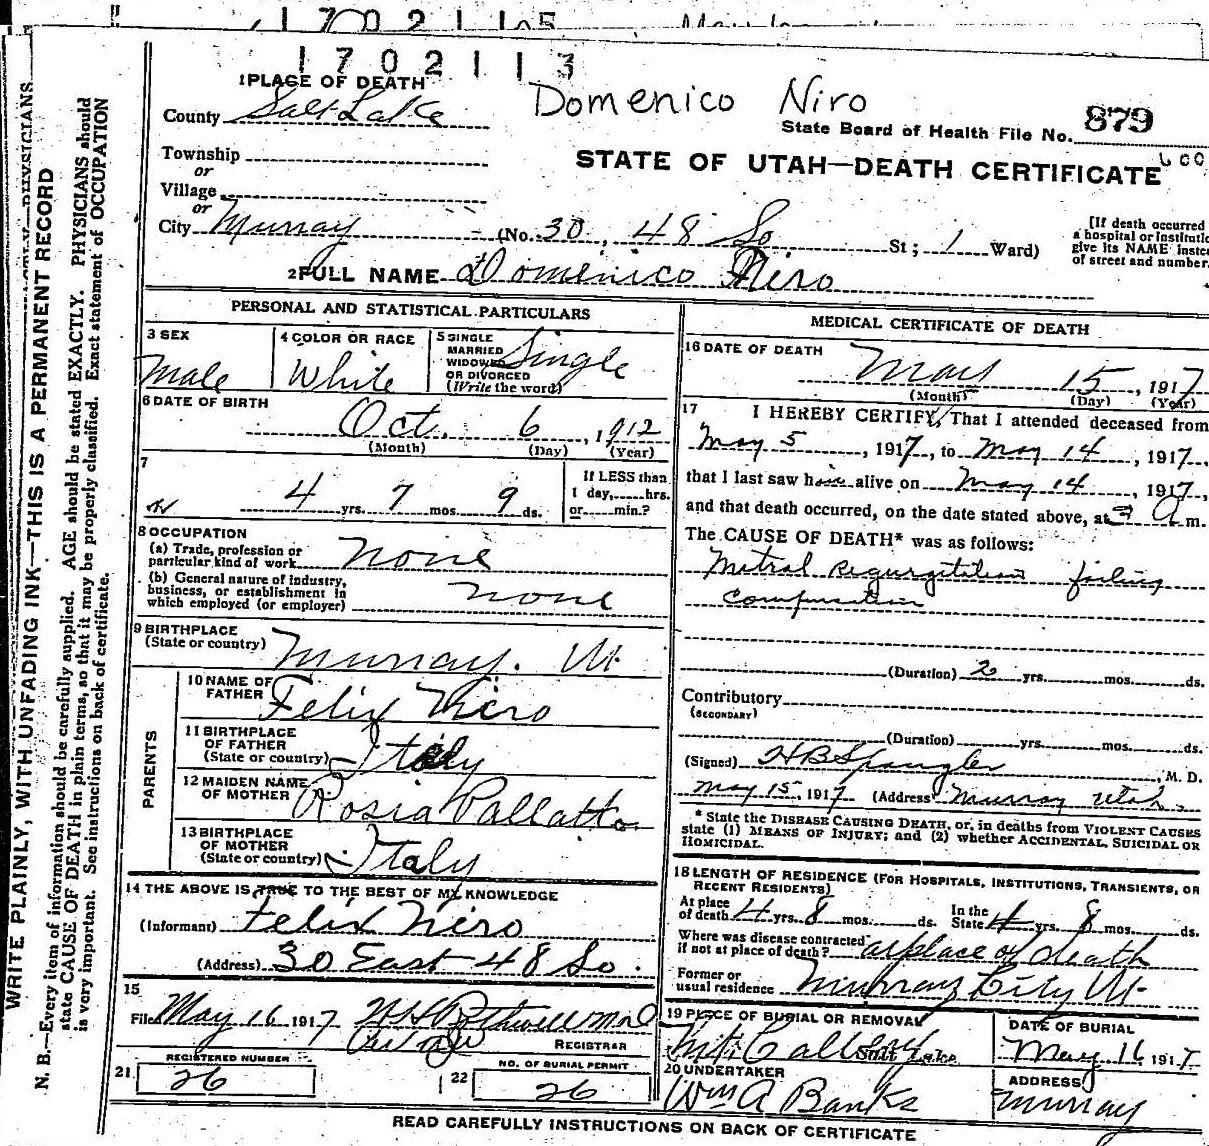 1702113
Domenico Niro
1 PLACE OF DEATH
County Salt Lake
State Board of Health File No. 879
Township
or
Village
or
STATE OF UTAH—DEATH CERTIFICATE
600
City Murray (No. 30, 48 So St; 1 Ward)
[If death occurred
a hospital or institutio
give its NAME instea
of street and number.
2 FULL NAME Domenico Niro
PERSONAL AND STATISTICAL PARTICULARS
3 SEX
Male
4 COLOR OR RACE
White
5 SINGLE
MARRIED
WIDOWED
OR DIVORCED
(Write the word)
Single
6 DATE OF BIRTH
Oct. 6, 1912
(Month) (Day) (Year)
7
4 yrs. 7 mos. 9 ds.
If LESS than
1 day,......hrs.
or......min.?
8 OCCUPATION
(a) Trade, profession or
particular kind of work none
(b) General nature of industry,
business, or establishment in
which employed (or employer) none
9 BIRTHPLACE
(State or country) Murray. Ut.
PARENTS
10 NAME OF
FATHER Felix Niro
11 BIRTHPLACE
OF FATHER
(State or country) Italy
12 MAIDEN NAME
OF MOTHER Rosia Pallatto
13 BIRTHPLACE
OF MOTHER
(State or country) Italy
14 THE ABOVE IS TRUE TO THE BEST OF MY KNOWLEDGE
(Informant) Felix Niro
(Address) 30 East 48 So.
15
File May 16 1917
REGISTRAR
REGISTERED NUMBER
21 26
NO. OF BURIAL PERMIT
22 26
MEDICAL CERTIFICATE OF DEATH
16 DATE OF DEATH
May 15, 1917
(Month) (Day) (Year)
17 I HEREBY CERTIFY, That I attended deceased from
May 5, 1917, to May 14, 1917,
that I last saw him alive on May 14, 1917,
and that death occurred, on the date stated above, at 9 a m.
The CAUSE OF DEATH* was as follows:
Mitral regurgitation failing
compensation
(Duration) 2 yrs. mos. ds.
Contributory
(SECONDARY)
(Duration) yrs. mos. ds.
(Signed) H B Spangler, M. D.
May 15, 1917 (Address) Murray Utah.
* State the DISEASE CAUSING DEATH, or, in deaths from VIOLENT CAUSES
state (1) MEANS OF INJURY; and (2) whether ACCIDENTAL, SUICIDAL OR
HOMICIDAL.
18 LENGTH OF RESIDENCE (FOR HOSPITALS, INSTITUTIONS, TRANSIENTS, OR
RECENT RESIDENTS)
At place
of death 4 yrs. 8 mos. ds. In the
State 4 yrs. 8 mos. ds.
Where was disease contracted
if not at place of death? at place of death
Former or
usual residence Murray City Ut
19 PLACE OF BURIAL OR REMOVAL
Salt Lake
DATE OF BURIAL
May 16 1917
20 UNDERTAKER
Wm A Banks
ADDRESS
Murray
READ CAREFULLY INSTRUCTIONS ON BACK OF CERTIFICATE
WRITE PLAINLY, WITH UNFADING INK—THIS IS A PERMANENT RECORD
N. B.—Every item of information should be carefully supplied. AGE should be stated EXACTLY. PHYSICIANS should
state CAUSE OF DEATH in plain terms, so that it may be properly classified. Exact statement of OCCUPATION
is very important. See instructions on back of certificate.